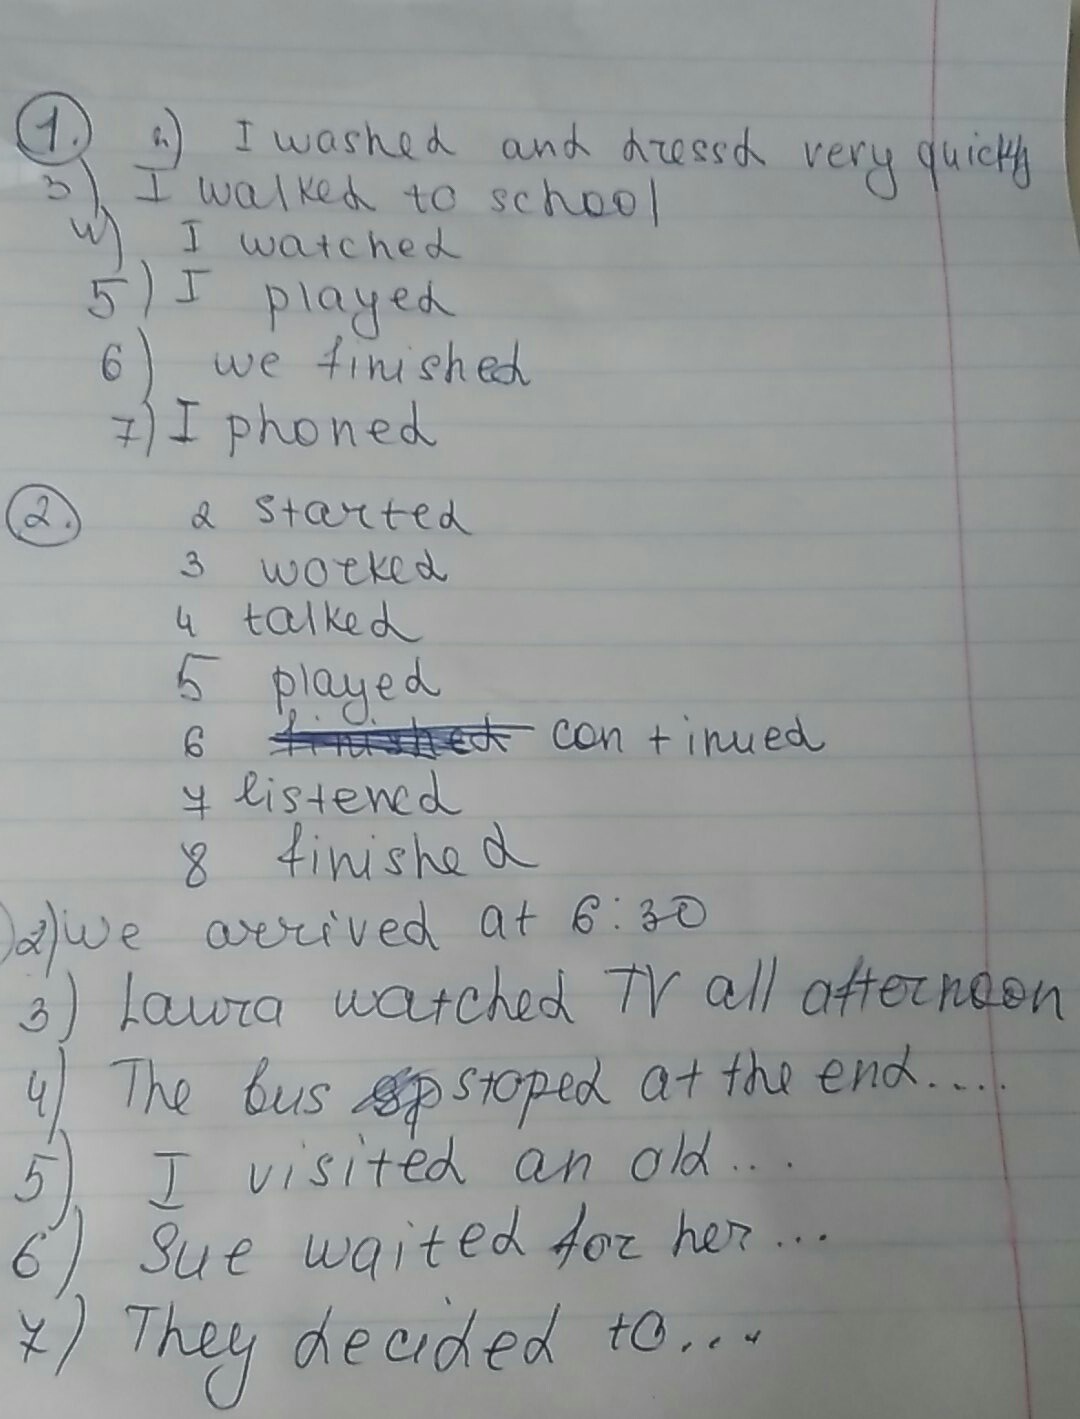 1. a) I washed and dressd very quickly
3) I walked to school
4) I watched
5) I played
6) we finished
7) I phoned
2. 2 started
3 worked
4 talked
5 played
6 finished continued
7 listened
8 finished
2) We arrived at 6:30
3) Laura watched TV all afternoon
4) The bus stoped at the end....
5) I visited an old...
6) Sue waited for her...
7) They decided to...